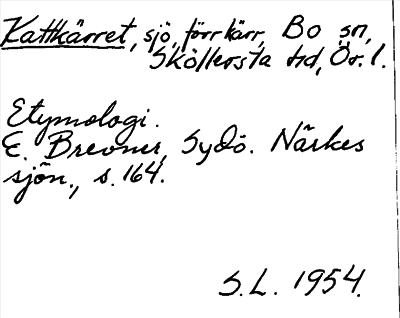 Kattkärret, sjö, förr kärr, Bo sn,
Sköllersta hd, Ör. l.
Etymologi.
E. Brevner, Sydö. Närkes
sjön., s. 164.
S.L. 1954.